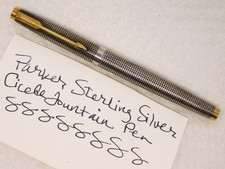 Parker Sterling Silver
Cicele Fountain Pen